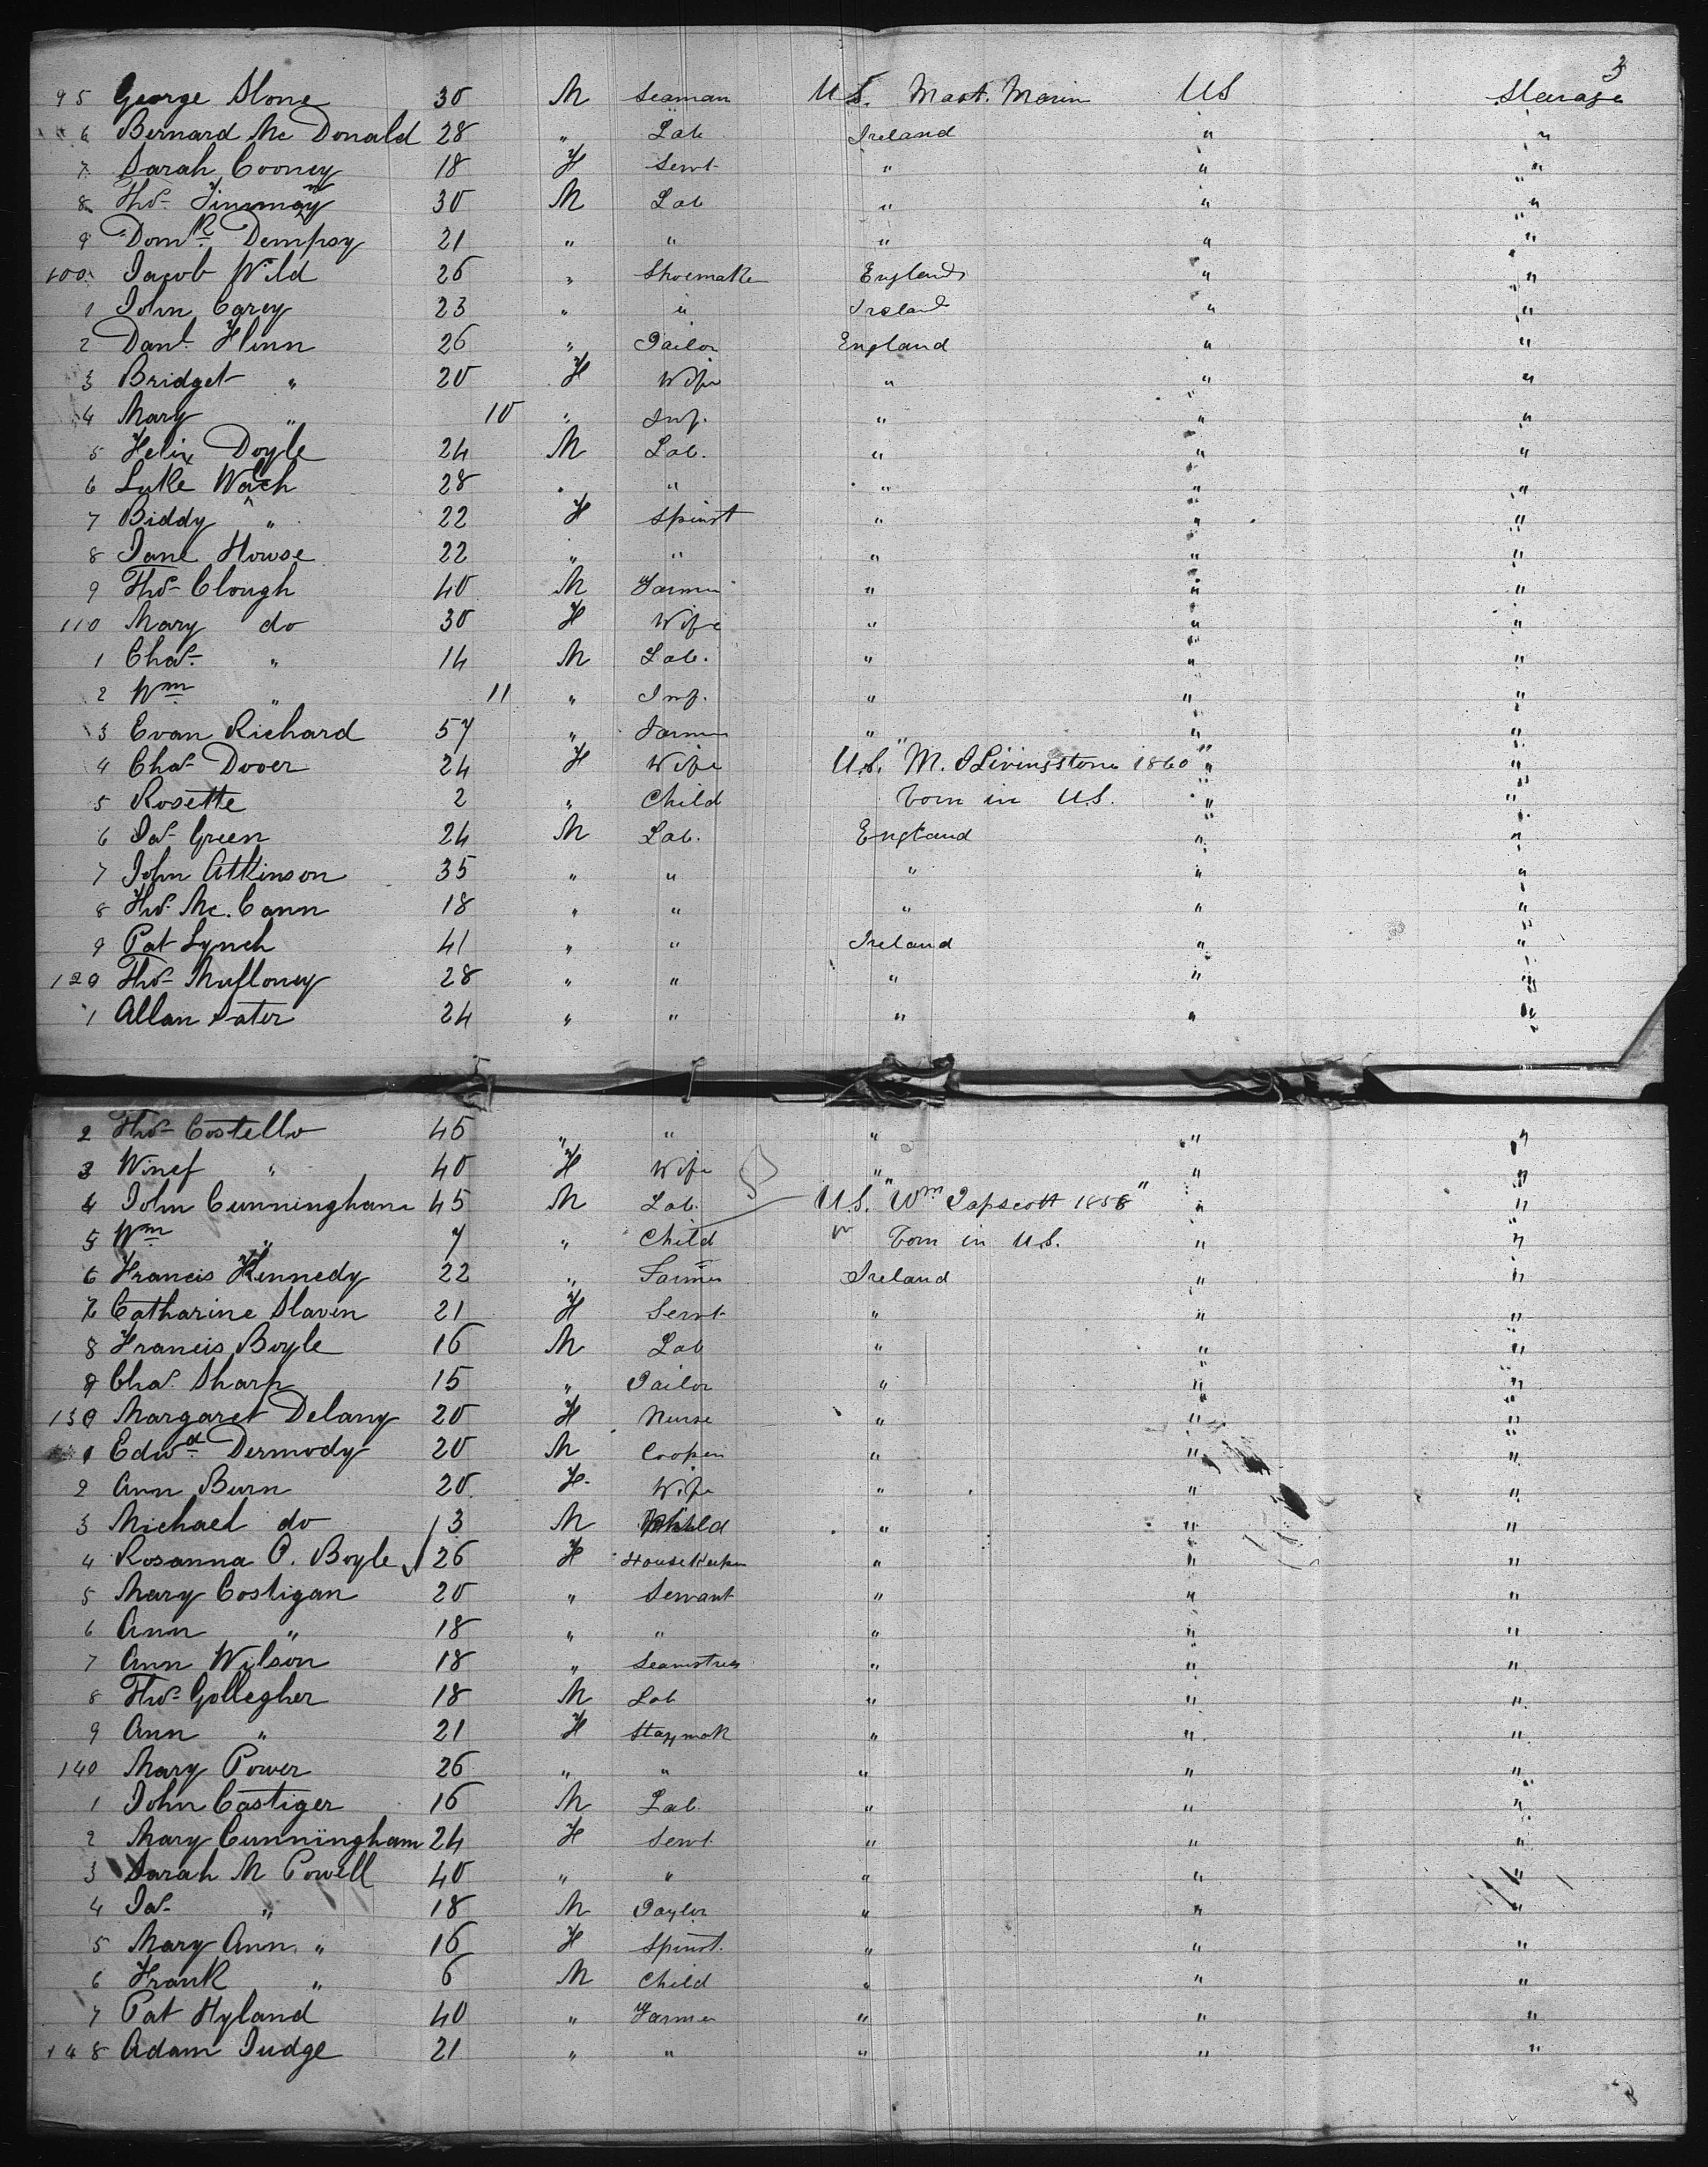 3
95 George Slone 30 M Seaman U.S. Mast. Marin US Steerage
6 Bernard Mc Donald 28 " Lab Ireland " "
7 Sarah Cooney 18 F Servt " " "
8 Thos. 30 M Lab " " "
9 Domk. Dempsy 21 " " " " "
100 Jacob Wild 26 " Shoemaker England " "
1 John Carey 23 " " Ireland " "
2 Danl. Flinn 26 " Tailor England " "
3 Bridget " 20 F Wife " " "
4 Mary " 10 " Inf. " " "
5 Felix Doyle 24 M Lab. " " "
6 Luke 28 " " " " "
7 Biddy " 22 F Spinst " " "
8 Jane Howse 22 " " " " "
9 Thos. Clough 40 M Farmer " " "
110 Mary do 30 F Wife " " "
1 Chas. " 14 M Lab. " " "
2 Wm " 11 " Inf. " " "
3 Evan Richard 57 " Farmer " " "
4 Chas. Dover 24 F Wife U.S. "M. Livingstone 1860" " "
5 Rosette 2 " Child born in U.S. " "
6 Jas. Green 24 M Lab. England " "
7 John Atkinson 35 " " " " "
8 Thos. Mc. Cann 18 " " " " "
9 Pat Lynch 41 " " Ireland " "
120 Thos. 28 " " " " "
1 Allan Sater 24 " " " " "
2 Thos. Costello 45 " " " " "
3 Winef " 40 F Wife " " "
4 John Cunningham 45 M Lab. U.S. "Wm Tapscott 1858" " "
5 Wm " 7 " Child born in U.S. " "
6 Francis Kennedy 22 " Farmer Ireland " "
7 Catharine Slaven 21 F Servt " " "
8 Francis Boyle 16 M Lab " " "
9 Chas. Sharp 15 " Tailor " " "
130 Margaret Delany 20 F Nurse " " "
1 Edwd. Dermody 20 M Cooper " " "
2 Ann Burn 20 F Wife " " "
3 Michael do 3 M Child " " "
4 Rosanna O. Boyle 26 F Housekeeper " " "
5 Mary Costigan 20 " Servant " " "
6 Ann " 18 " " " " "
7 Ann Wilson 18 " Seamstress " " "
8 Thos. Gollegher 18 M Lab " " "
9 Ann " 21 F Staymak " " "
140 Mary Power 26 " " " " "
1 John Castiger 16 M Lab. " " "
2 Mary Cunningham 24 F Servt. " " "
3 Sarah M Powell 40 " " " " "
4 Jas. " 18 M Taylor " " "
5 Mary Ann " 16 F Spinst. " " "
6 Frank " 6 M Child " " "
7 Pat Hyland 40 " Farmer " " "
148 Adam Judge 21 " " " " "